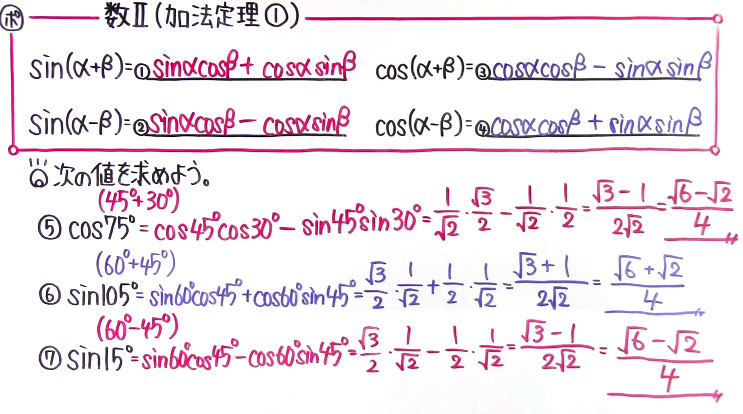 ポ 数Ⅱ(加法定理①)
sin(α+β)=①sinαcosβ+cosαsinβ cos(α+β)=③cosαcosβ-sinαsinβ
sin(α-β)=②sinαcosβ-cosαsinβ cos(α-β)=④cosαcosβ+sinαsinβ
次の値を求めよう。
(45°+30°)
⑤ cos75°=cos45°cos30°-sin45°sin30°=1/√2・√3/2-1/√2・1/2=(√3-1)/2√2=(√6-√2)/4
(60°+45°)
⑥ sin105°=sin60°cos45°+cos60°sin45°=√3/2・1/√2+1/2・1/√2=(√3+1)/2√2=(√6+√2)/4
(60°-45°)
⑦ sin15°=sin60°cos45°-cos60°sin45°=√3/2・1/√2-1/2・1/√2=(√3-1)/2√2=(√6-√2)/4